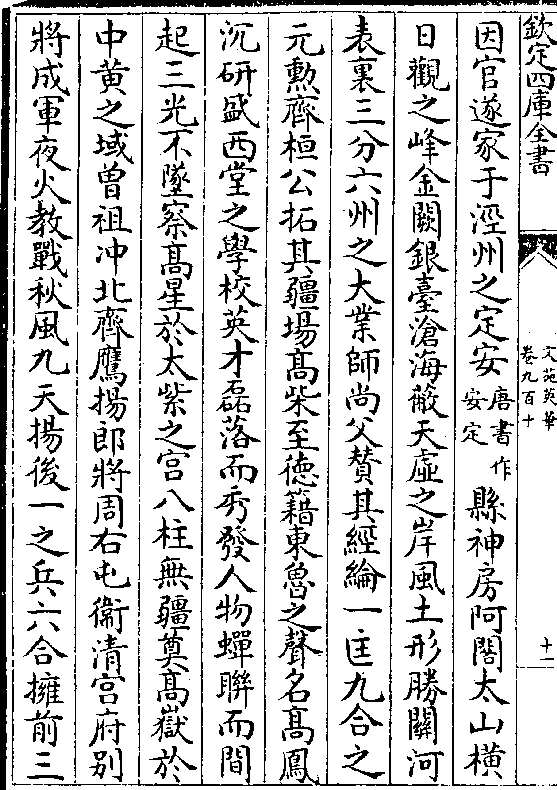 欽定四庫全書
文苑英華
卷九百十
十一
因官遂家于涇州之定安唐書作安定縣神房阿閣太山橫
日觀之峰金闕銀臺滄海蔽天虛之岸風土形勝關河
表裏三分六州之大業師尚父賛其經綸一匡九合之
元勲齊桓公拓其疆場髙柴至徳籍東魯之聲名髙鳳
沉研盛西堂之學校英才磊落而秀發人物蟬聯而間
起三光不墜察髙星於太紫之宫八柱無疆奠髙嶽於
中黄之域曽祖冲北齊鷹揚郎將周右屯衛清宫府别
將成軍夜火教戰秋風九天揚後一之兵六合擁前三